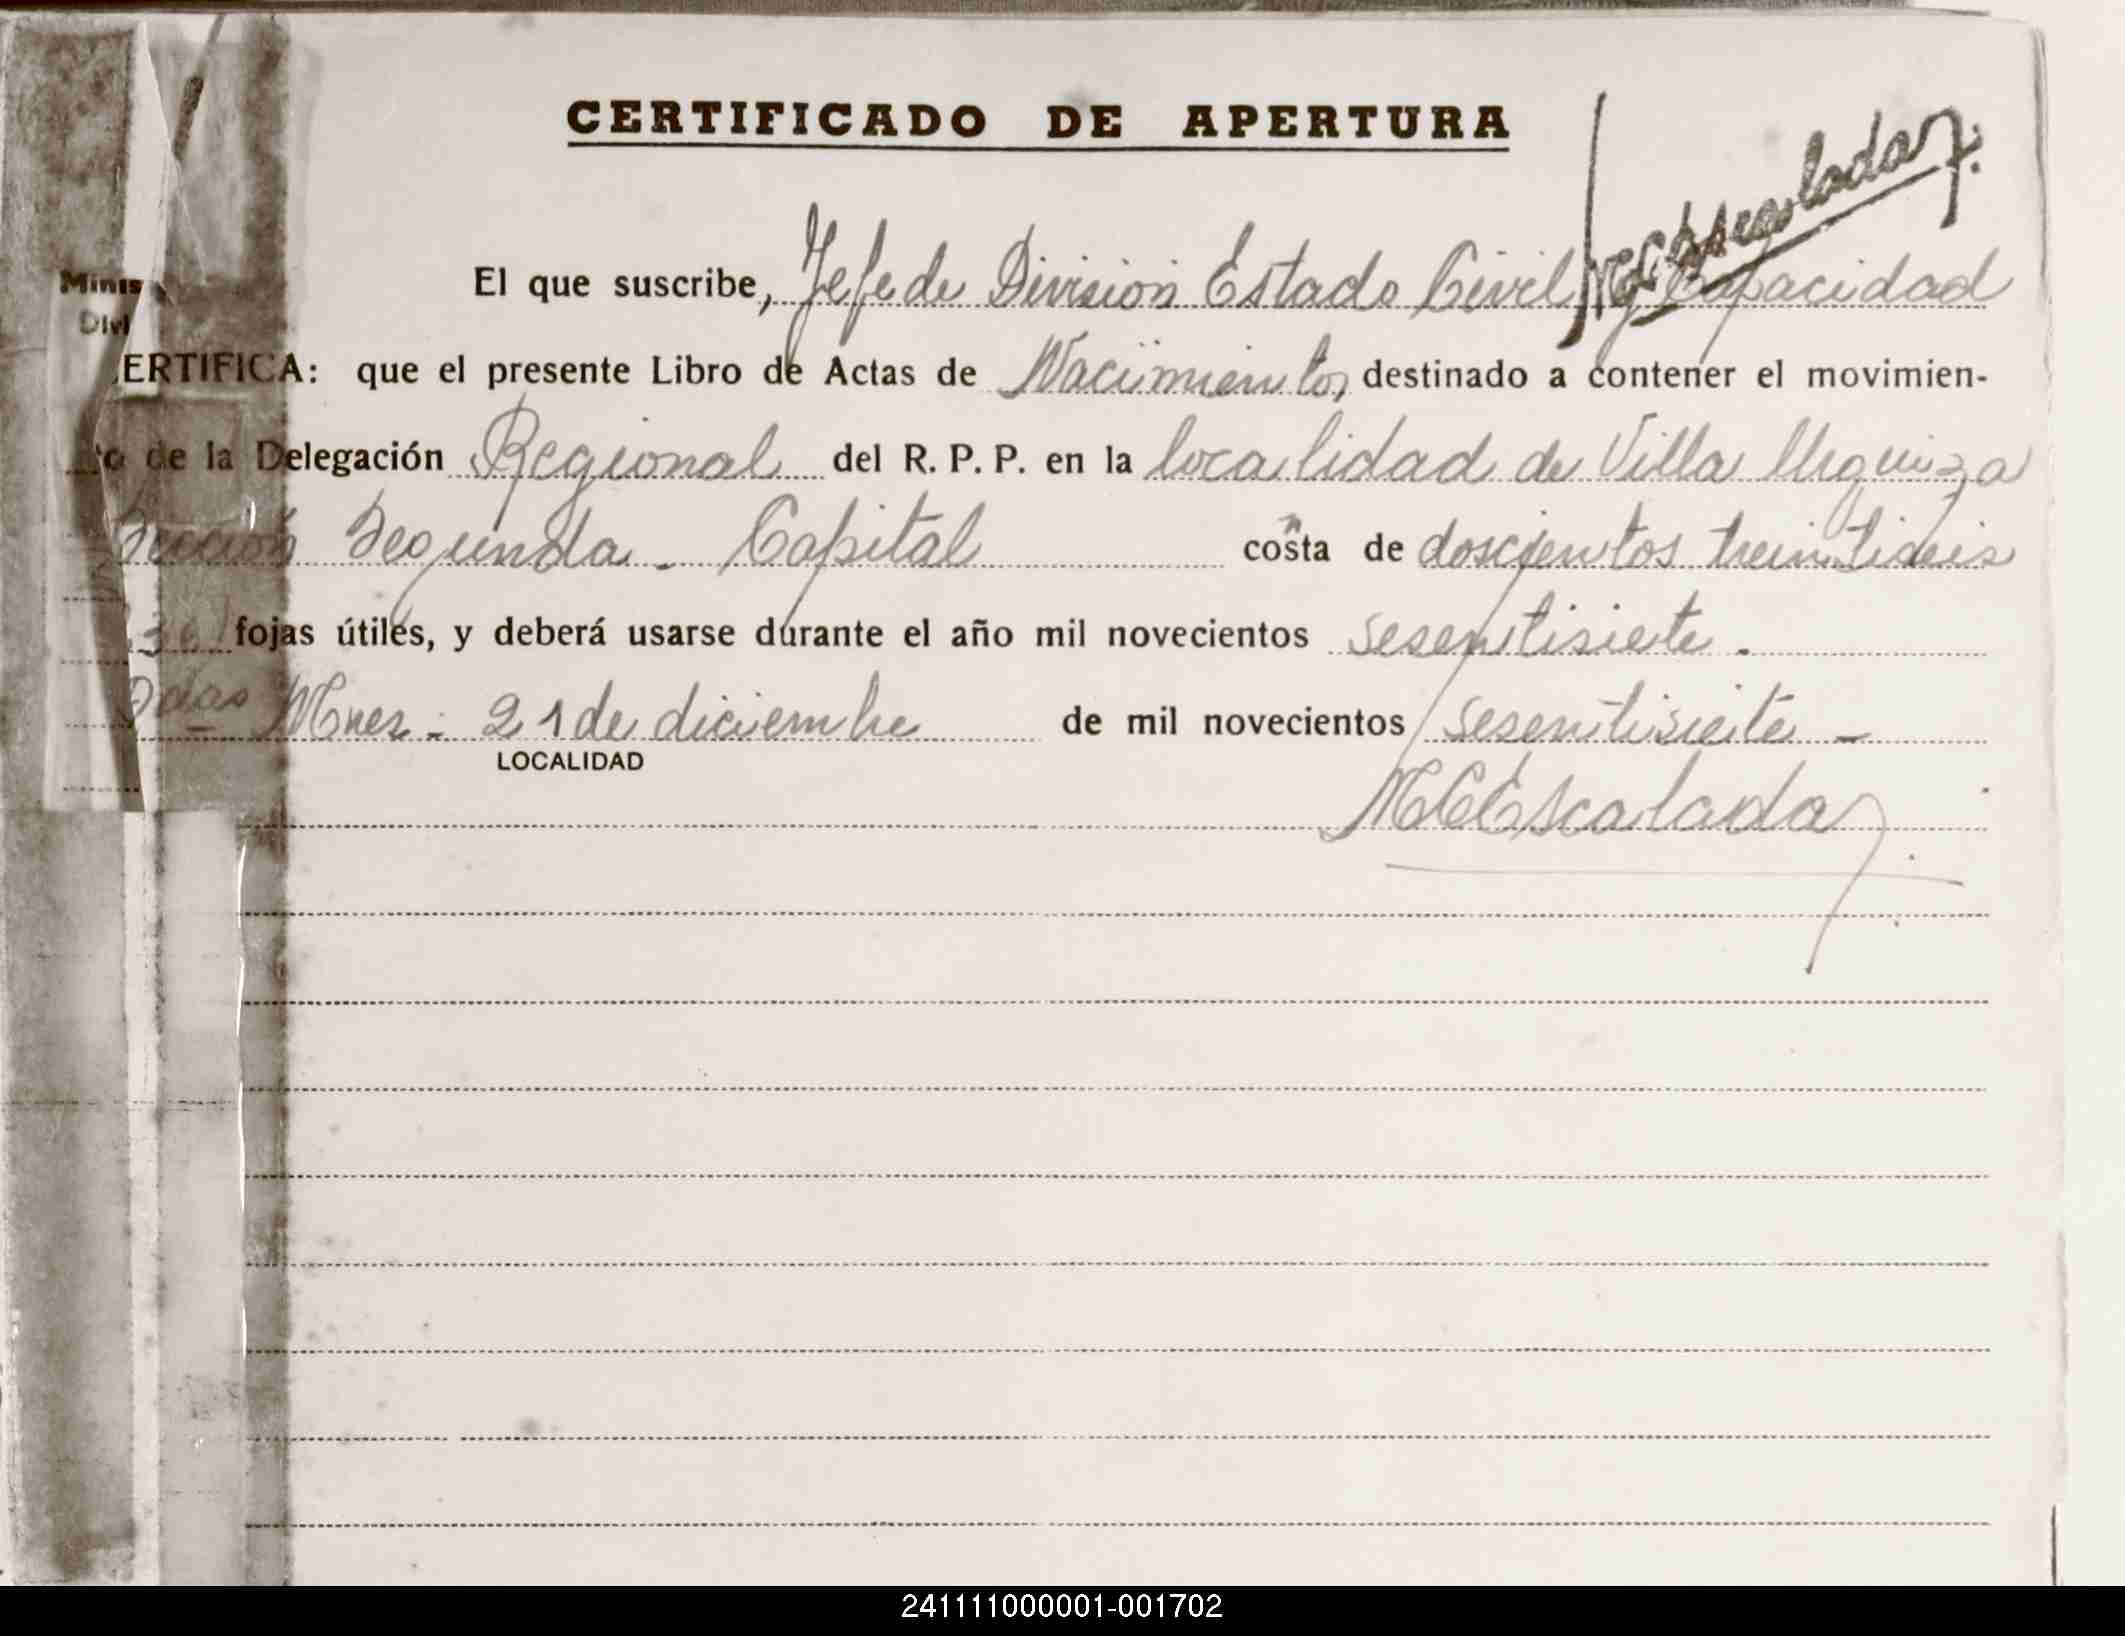 CERTIFICADO DE APERTURA
M C Escalada
El que suscribe, Jefe de División Estado Civil y Capacidad
Minis
Divi
ERTIFICA: que el presente Libro de Actas de Nacimientos destinado a contener el movimien-
to de la Delegación Regional del R. P. P. en la localidad de Villa Urquiza
Sección Segunda - Capital consta de doscientos treintiseis
36) fojas útiles, y deberá usarse durante el año mil novecientos sesentisiete.
Mnes - 21 de diciembre de mil novecientos sesentisiete -
LOCALIDAD
M C Escalada
241111000001-001702